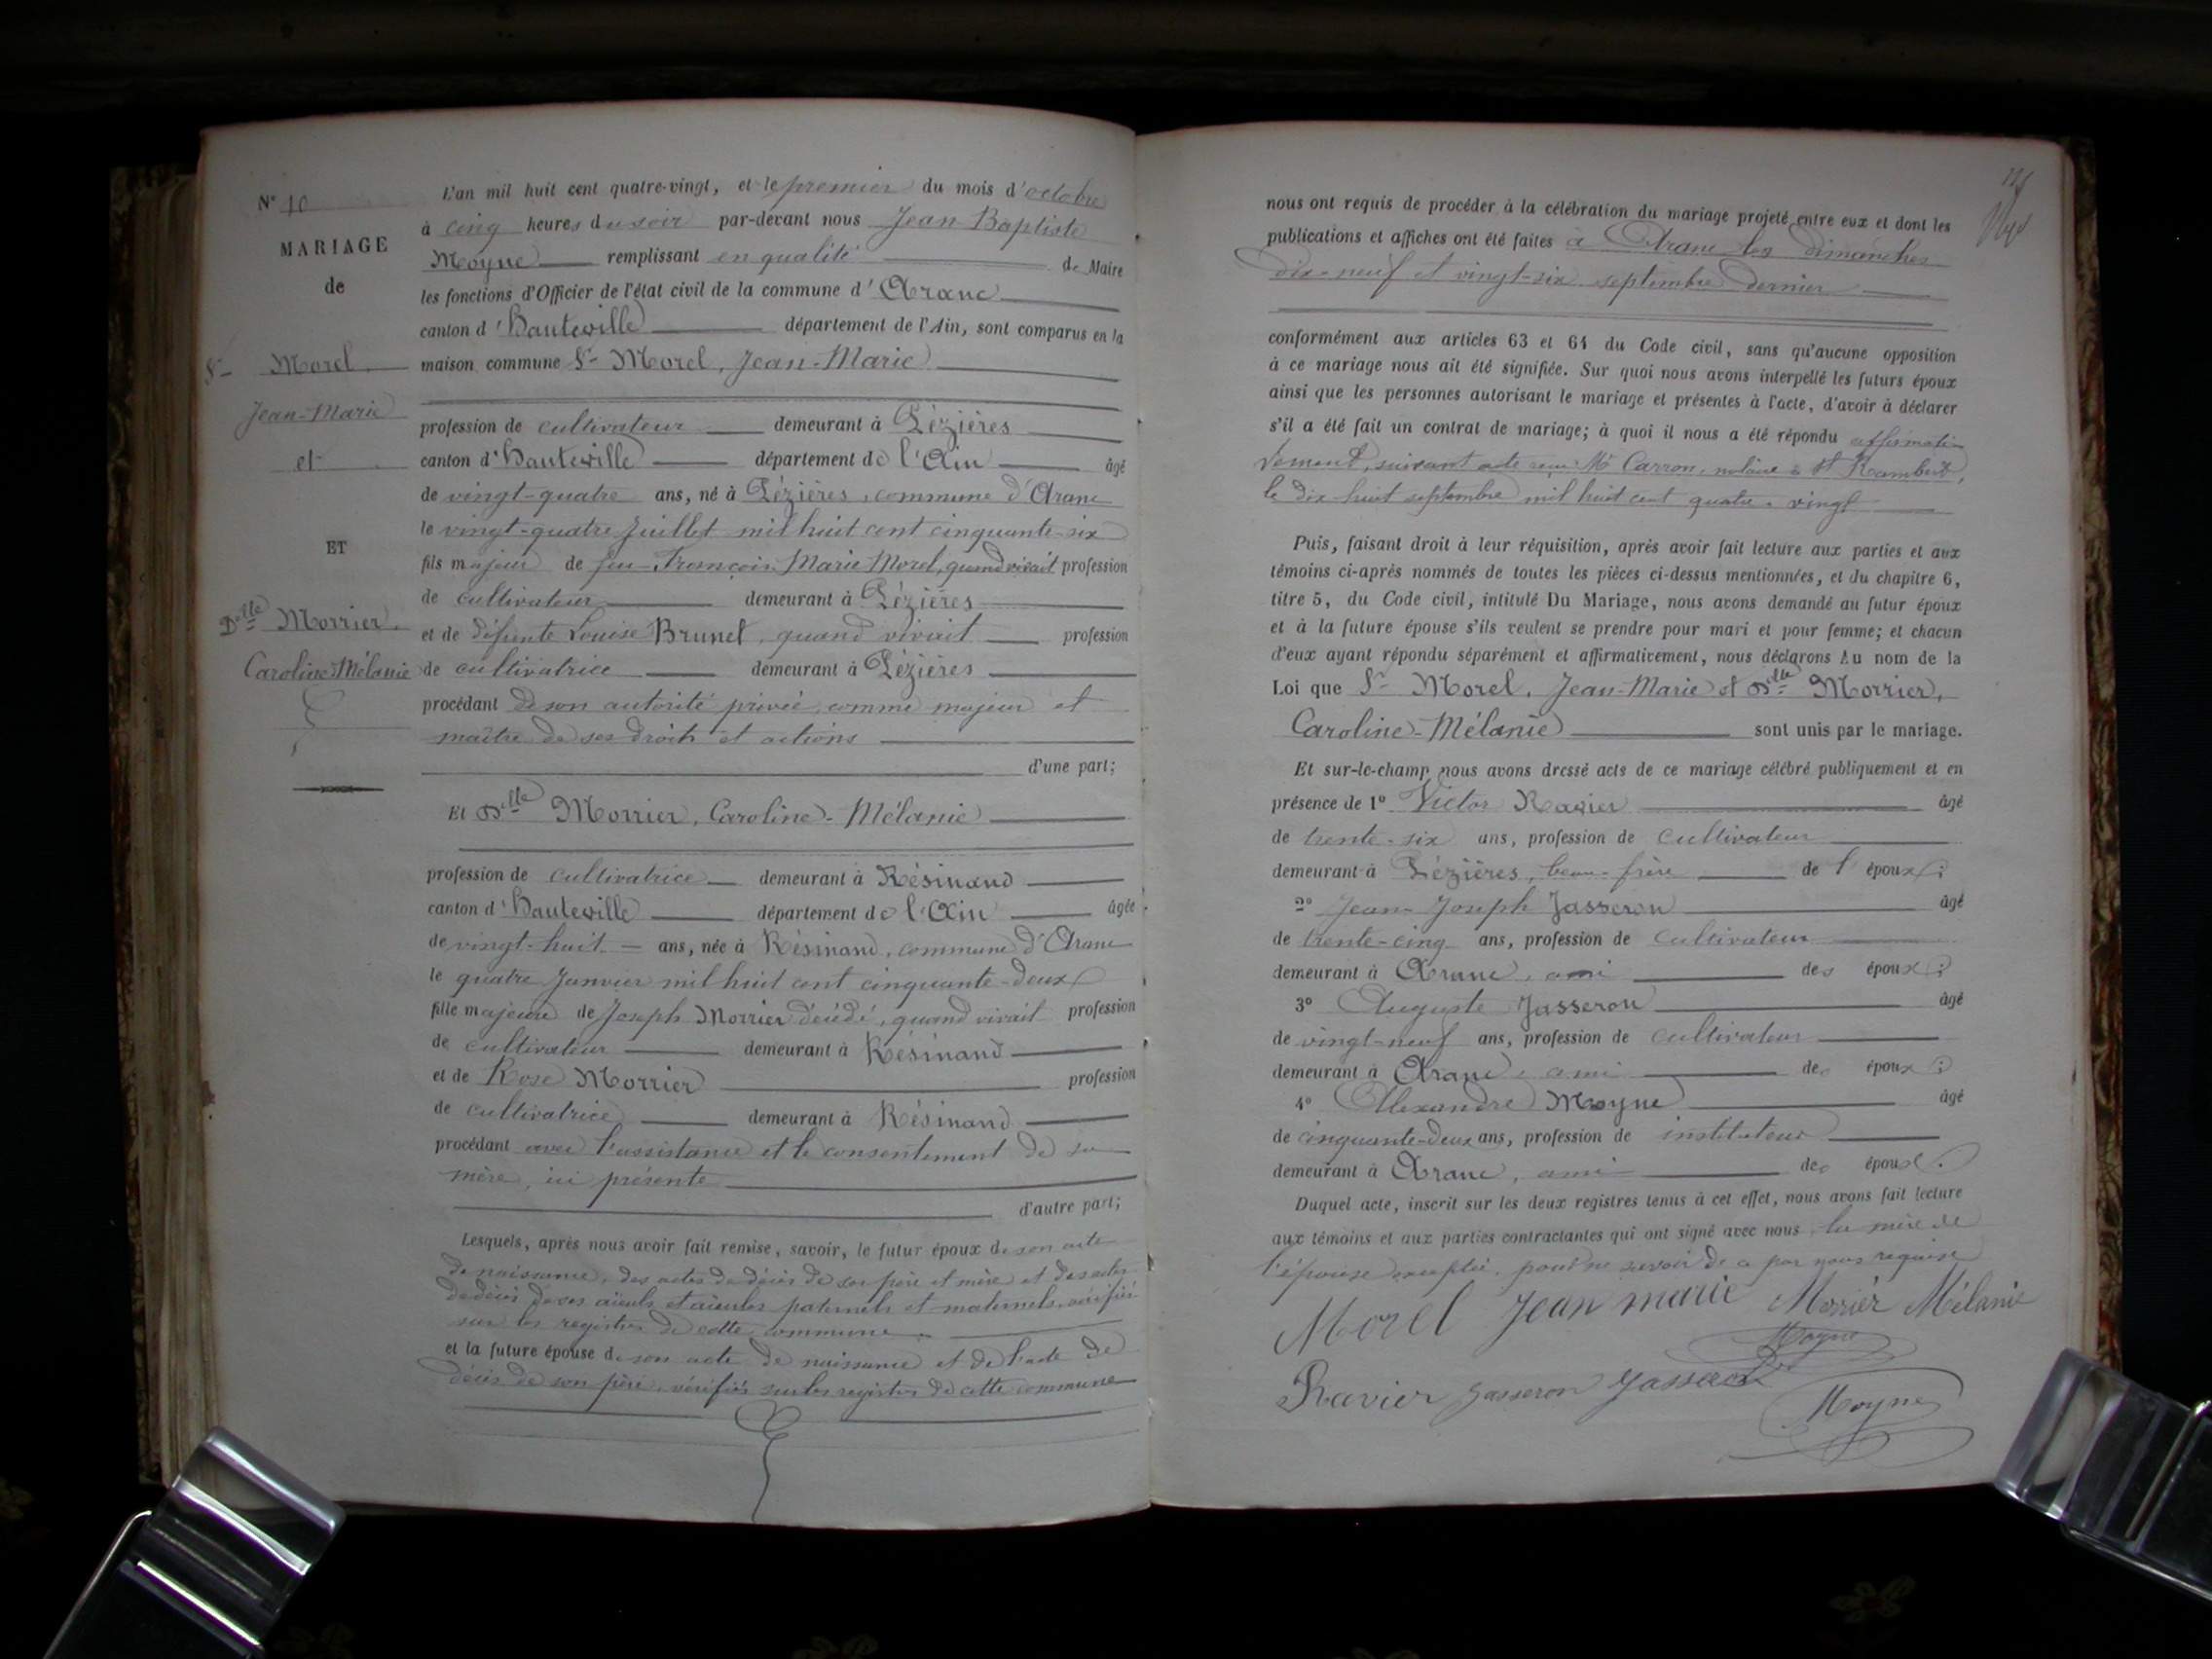 N° 10
MARIAGE
de
Sr Morel
Jean-Marie
et
ET
Delle Morrier.
Caroline-Mélanie
L'an mil huit cent quatre-vingt, et le premier du mois d'octobre
à cinq heures du soir par-devant nous Jean Baptiste
Moyne remplissant en qualité de Maire
les fonctions d'Officier de l'état civil de la commune d'Aranc
canton d'hauteville département de l'Ain, sont comparus en la
maison commune Sr Morel, Jean-Marie
profession de cultivateur demeurant à Pézières
canton d'hauteville département de l'Ain âgé
de vingt-quatre ans, né à Pézières, commune d'Aranc
le vingt-quatre Juillet mil huit cent cinquante-six
fils majeur de feu François Marie Morel, quand vivait profession
de cultivateur demeurant à Pézières
et de défunte Louise Brunet, quand vivait profession
de cultivatrice demeurant à Pézières
procédant de son autorité privée comme majeur et
maître de ses droits et actions
d'une part;
Et Delle Morrier, Caroline-Mélanie
profession de cultivatrice demeurant à Résinand
canton d'hauteville département de l'Ain âgée
de vingt-huit ans, née à Résinand, commune d'Aranc
le quatre Janvier mil huit cent cinquante-deux
fille majeure de Joseph Morrier décédé, quand vivait profession
de cultivateur demeurant à Résinand
et de Rose Morrier profession
de cultivatrice demeurant à Résinand
procédant avec l'assistance et le consentement de sa
mère, ici présente
d'autre part;
Lesquels, après nous avoir fait remise, savoir, le futur époux de son acte
de naissance, des actes de décès de ses père et mère et des actes
de décès de ses aïeuls et aïeules paternels et maternels, vérifiés
sur les registres de cette commune
et la future épouse de son acte de naissance et de l'acte de
décès de son père, vérifiés sur les registres de cette commune
nous ont requis de procéder à la célébration du mariage projeté entre eux et dont les
publications et affiches ont été faites à Aranc les dimanches
dix-neuf et vingt-six septembre dernier
conformément aux articles 63 et 64 du Code civil, sans qu'aucune opposition
à ce mariage nous ait été signifiée. Sur quoi nous avons interpellé les futurs époux
ainsi que les personnes autorisant le mariage et présentes à l'acte, d'avoir à déclarer
s'il a été fait un contrat de mariage; à quoi il nous a été répondu affirmati-
vement, suivant acte reçu Me Carron, notaire à St Rambert,
le dix huit septembre mil huit cent quatre-vingt
Puis, faisant droit à leur réquisition, après avoir fait lecture aux parties et aux
témoins ci-après nommés de toutes les pièces ci-dessus mentionnées, et du chapitre 6,
titre 5, du Code civil, intitulé Du Mariage, nous avons demandé au futur époux
et à la future épouse s'ils veulent se prendre pour mari et pour femme; et chacun
d'eux ayant répondu séparément et affirmativement, nous déclarons Au nom de la
Loi que Sr Morel, Jean-Marie et Delle Morrier,
Caroline-Mélanie sont unis par le mariage.
Et sur-le-champ nous avons dressé acts de ce mariage célébré publiquement et en
présence de 1° Victor Ravier âgé
de trente-six ans, profession de cultivateur
demeurant à Pézières, beau-frère de l'époux;
2° Jean-Joseph Jasseron âgé
de trente-cinq ans, profession de cultivateur
demeurant à Aranc, ami des époux;
3° Auguste Jasseron âgé
de vingt-neuf ans, profession de cultivateur
demeurant à Aranc, ami des époux;
4° Alexandre Moyne âgé
de cinquante-deux ans, profession de instituteur
demeurant à Aranc, ami des époux.
Duquel acte, inscrit sur les deux registres tenus à cet effet, nous avons fait lecture
aux témoins et aux parties contractantes qui ont signé avec nous, la mère de
l'épouse exceptée, pour ne savoir de ce par nous requise
Morel Jean marie Morrier Mélanie
Moyne
Ravier Jasseron Jasseron
Moyne